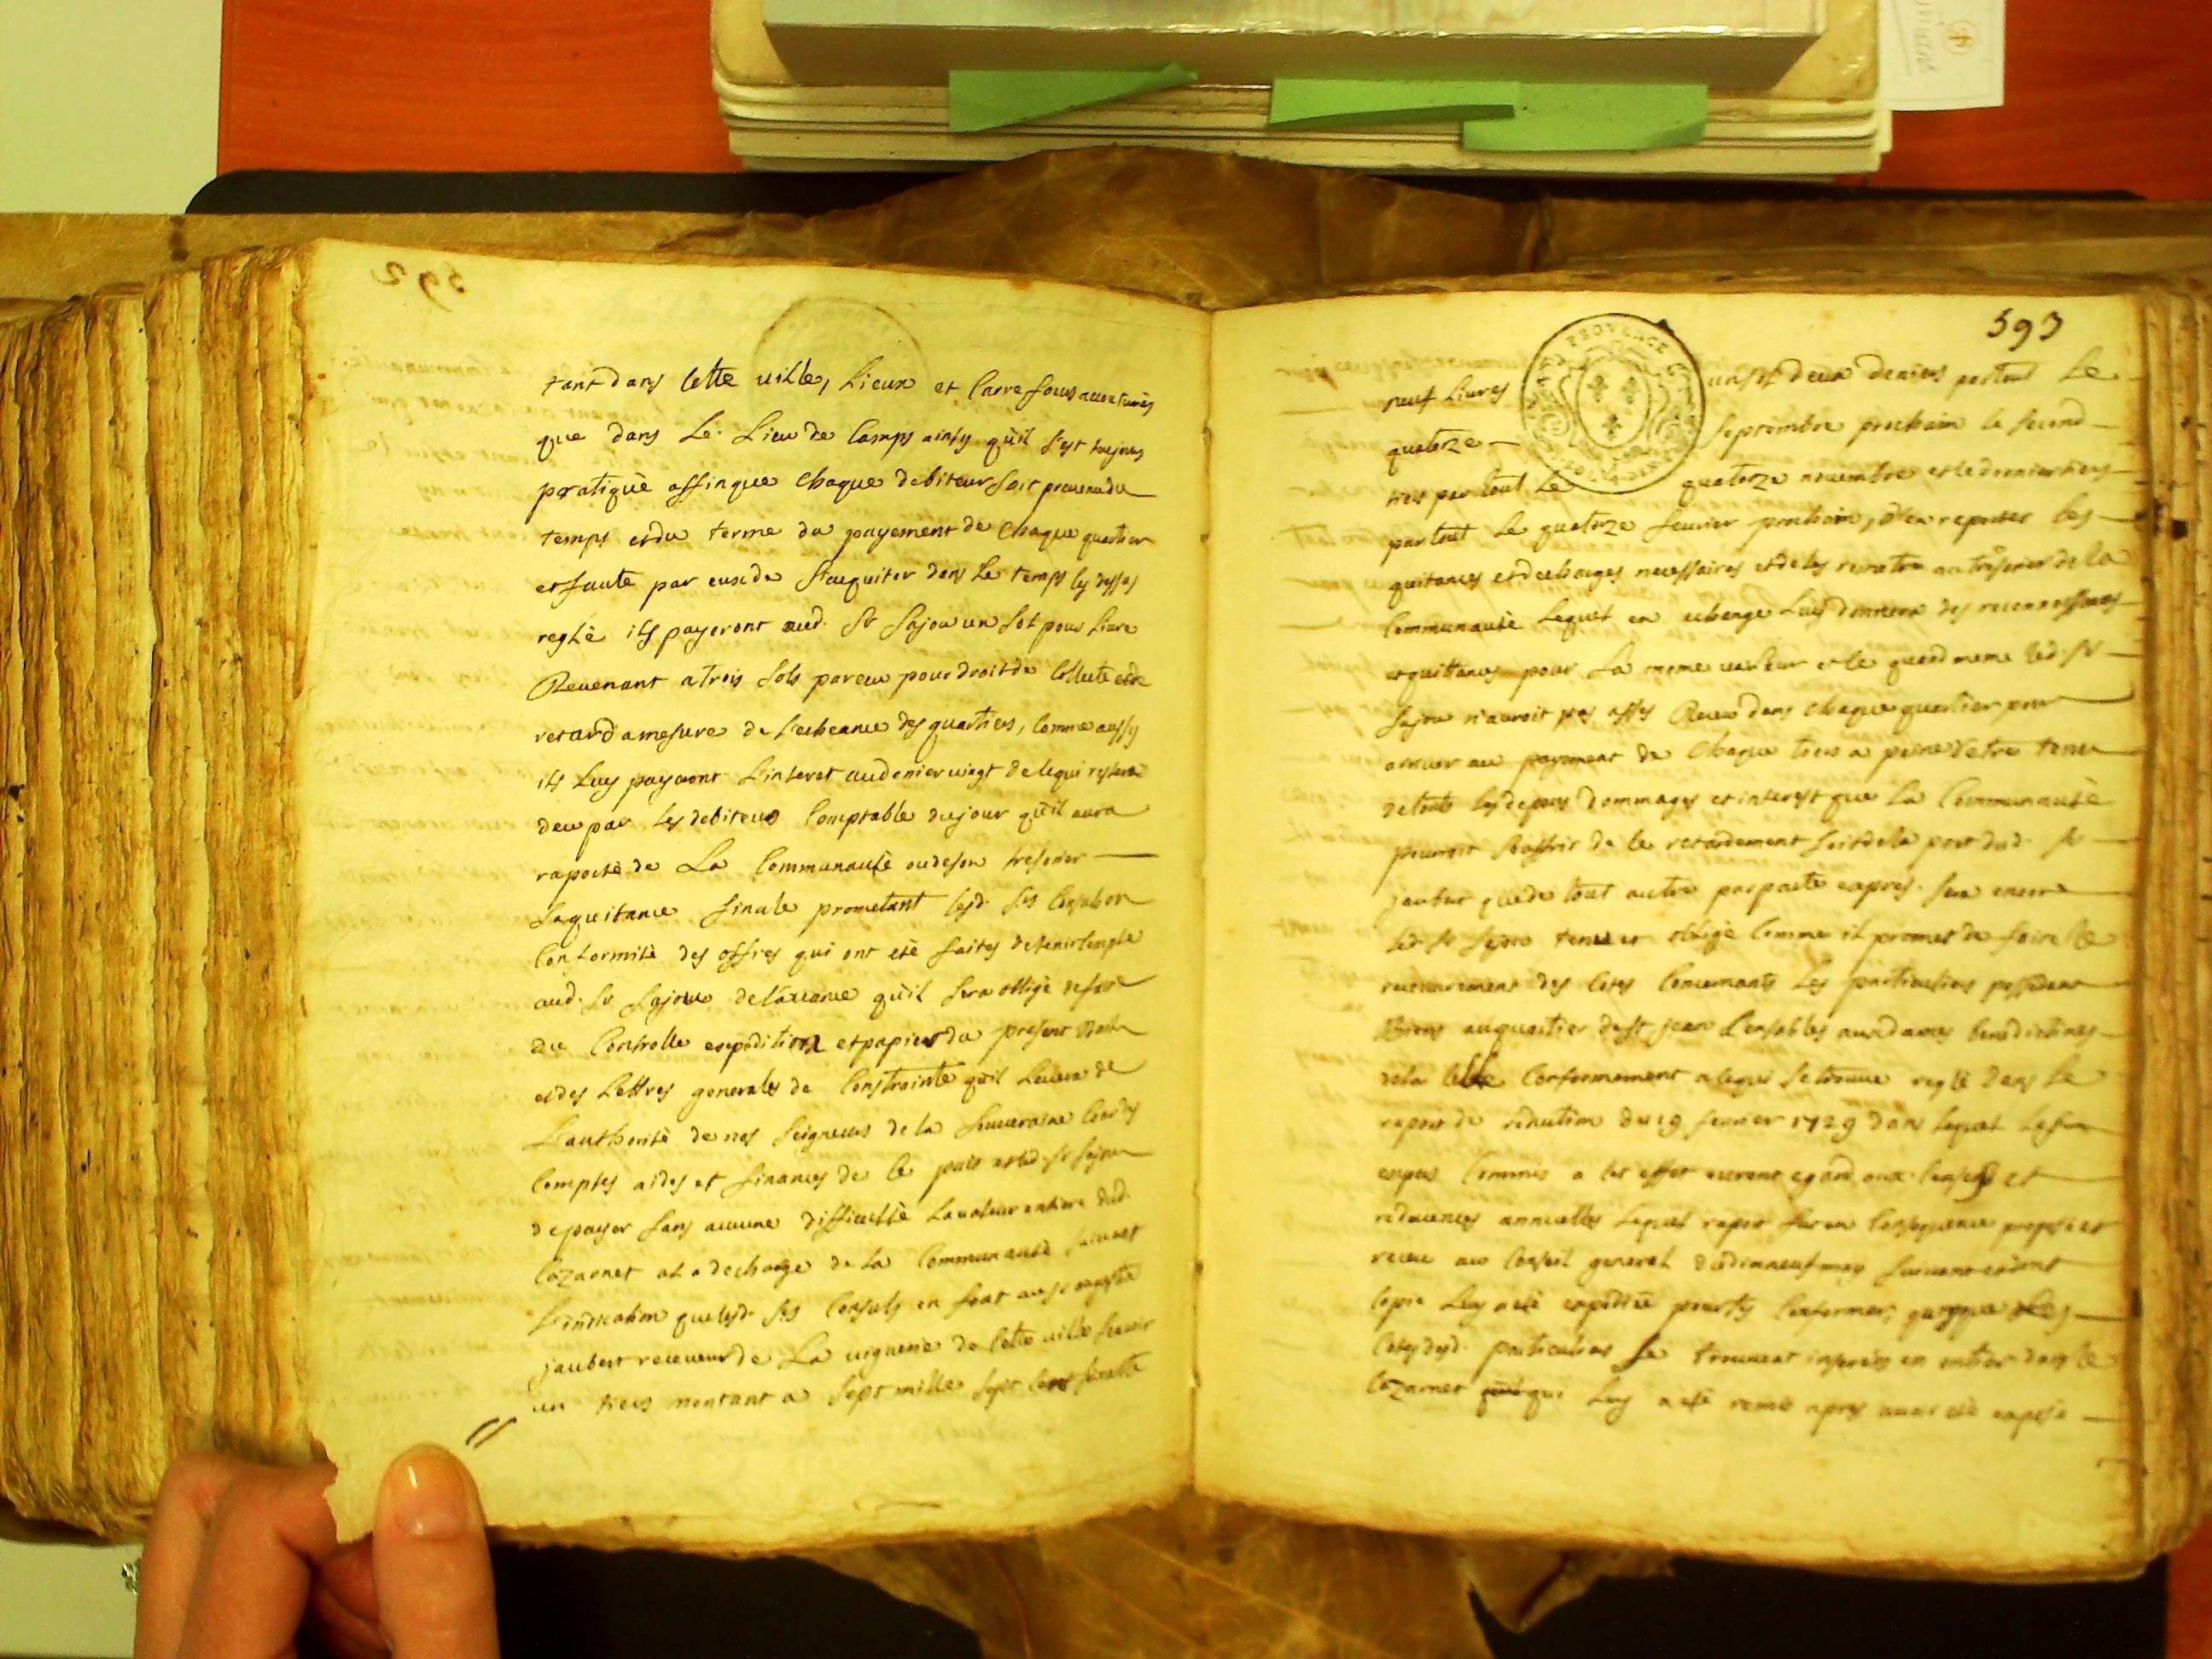 tant dans cette ville, Lieux et Carrefours accoutumés
que dans Le Lieu de Camps ainsy qu'il s'est toujours
pratiqué affinque chaque debiteur soit prevenu du
temps et du terme du payement de chaque quartier
et faute par eux de s'acquiter dans le temps cy dessus
reglé ils payeront aud. Sr Sajou un sol pour livre
Revenant a trois sols par ecu pour droit de Collecte et de
retard a mesure de l'echeance des quartiers, comme aussy
ils Luy payeront L'interet au denier vingt de ce qui restera
deu par Les debiteurs Comptable du jour qu'il aura
raporté de La Communauté ou de son tresorier
La quitance finale prometant lesd. Srs Consuls en
Conformité des offres qui ont eté faites de tenir Compte
aud. Sr Sajou de l'avance qu'il sera obligé de faire
du Controlle expedition et papier du present Bail
et des Lettres generales de Constrainte qu'il Levera de
L'authorité de nos seigneurs de la souveraine Cour des
Comptes aides et finances de ce païs et led. Sr Sajou
de payer sans aucune difficulté La valeur entiere dud.
Cazarnet a la decharge de la Communauté suivant
L'indication que lesd. Srs Consuls en font au Sr
jaubert receveur de La viguerie de Cette ville scavoir
un tiers montant a sept mille sept cent
592
593
PROVENCE
neuf Livres un sol deux deniers par tout Le
quatorze septembre prochain le second
tiers par tout Le quatorze novembre et le dernier tiers
par tout Le quatorze fevrier prochain, d'en reporter les
quitances et decharges necessaires et de les remettre au tresorier de la
Communauté Lequel en echange Luy donnera des reconnoissances
et quittances pour La meme valeur et le quand meme led. Sr
Sajou n'auroit pas assés Receu dans chaque quartier pour
arriver au payement de chaque tiers a peine d'etre tenu
de touts les depens dommages et interest que La Communauté
pourroit souffrir de ce retardement soit de la part dud. Sr
jaubert que de tout autre par pacte exprés. sera encore
led. Sr Sajou tenu et obligé Comme il promet de faire le
recouvrement des Cotes Concernants Les particuliers possedant
Biens au quartier de St jean Censables aux dames benedictines
de la Celle Conformement a ce qui se trouve reglé dans le
raport de reduction du 19 fevrier 1729 dans Lequel Les
expers Commis a cet effet eurent egard aux Censes et
redevances annuelles Lequel raport fut en Consequence
receu au Conseil general du dixneuf mars suivant
Copie Luy a eté expediée pour s'y Conformer,
Cotes desd. particuliers se trouvent inserées en entier dans le
Cazarnet qui Luy a eté remis apres avoir eté exposé